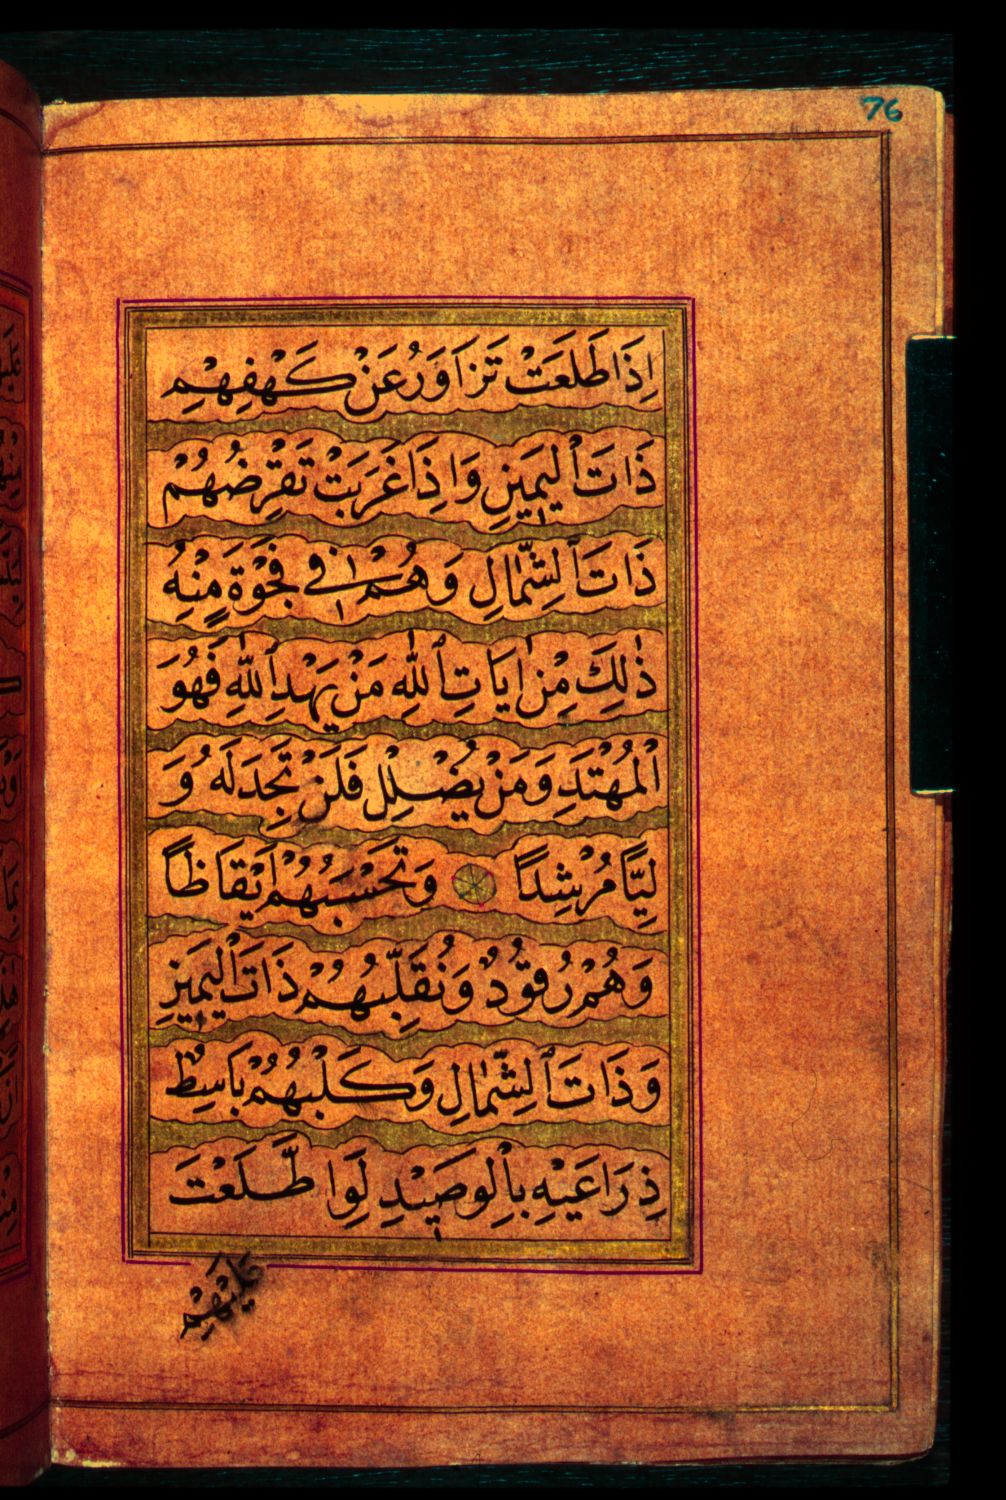 76
اِذَا طَلَعَتْ تَزَاوَرُ عَنْ كَهْفِهِمْ
ذَاتَ ٱلْيَمِينِ وَاِذَا غَرَبَتْ تَقْرِضُهُمْ
ذَاتَ ٱلشِّمَالِ وَهُمْ فِى فَجْوَةٍ مِنْهُ
ذٰلِكَ مِنْ اٰيَاتِ ٱللّٰهِ مَنْ يَهْدِ ٱللّٰهِ فَهُوَ
الْمُهْتَدِ وَمَنْ يُضْلِلْ فَلَنْ تَجِدَ لَهُ وَ
لِيًّا مُرْشِدًا وَتَحْسَبُهُمْ اَيْقَاظًا
وَهُمْ رُقُودٌ وَنُقَلِّبُهُمْ ذَاتَ الْيَمِينِ
وَذَاتَ ٱلشِّمَالِ وَكَلْبُهُمْ بَاسِطٌ
ذِرَاعَيْهِ بِالْوَصِيدِ لَوِا طَّلَعْتَ
عَلَيْهِمْ